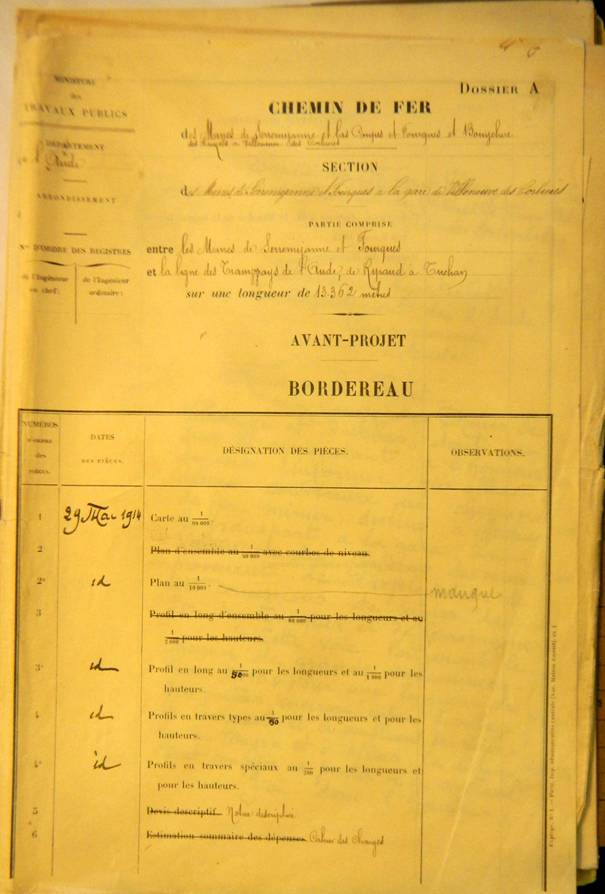 MINISTÈRE
des
TRAVAUX PUBLICS
DÉPARTEMENT
l'Aude
ARRONDISSEMENT
Nos D'ORDRE DES REGISTRES
de l'Ingénieur en chef:
de l'Ingénieur ordinaire:
DOSSIER A
CHEMIN DE FER
des Mines de Serremijanne et las Coupes et Fourques et
SECTION
des Mines de Serremijanne et Fourques à la gare de Villeneuve des Corbières
PARTIE COMPRISE
entre les Mines de Serremijanne et Fourques
et la ligne des Tramways de l'Aude, de Ripaud à Tuchan
sur une longueur de 13.362 mètres
AVANT-PROJET
BORDEREAU
NUMÉROS
des
PIÈCES.
DATES
DES PIÈCES.
DÉSIGNATION DES PIÈCES.
OBSERVATIONS.
1 29 Mai 1914 Carte au 1/80 000.
2 Plan d'ensemble au avec courbes de niveau.
2' id Plan au 1/10 000. manque
3 Profil en long d'ensemble au pour les longueurs et au
pour les hauteurs.
3' id Profil en long au pour les longueurs et au 1/1 000 pour les
hauteurs.
4 id Profils en travers types au 1/50 pour les longueurs et pour les
hauteurs.
4' id Profils en travers spéciaux au 1/200 pour les longueurs et
pour les hauteurs.
5 Devis descriptif. Notice descriptive
6 Estimation sommaire des dépenses. Cahier des Charges